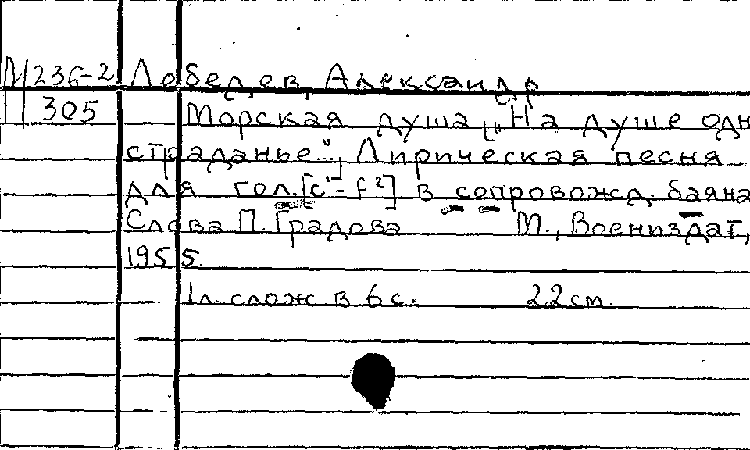 М 236-2 Лебедев, Александр
305 Морская душа „На душе одн
страданье“, Лирическая песня
для гол. [c¹-f²] в сопровожд. баяна
Слова П. Градова М., Воениздат,
1955.
1л. слож в 6 с. 22 см.